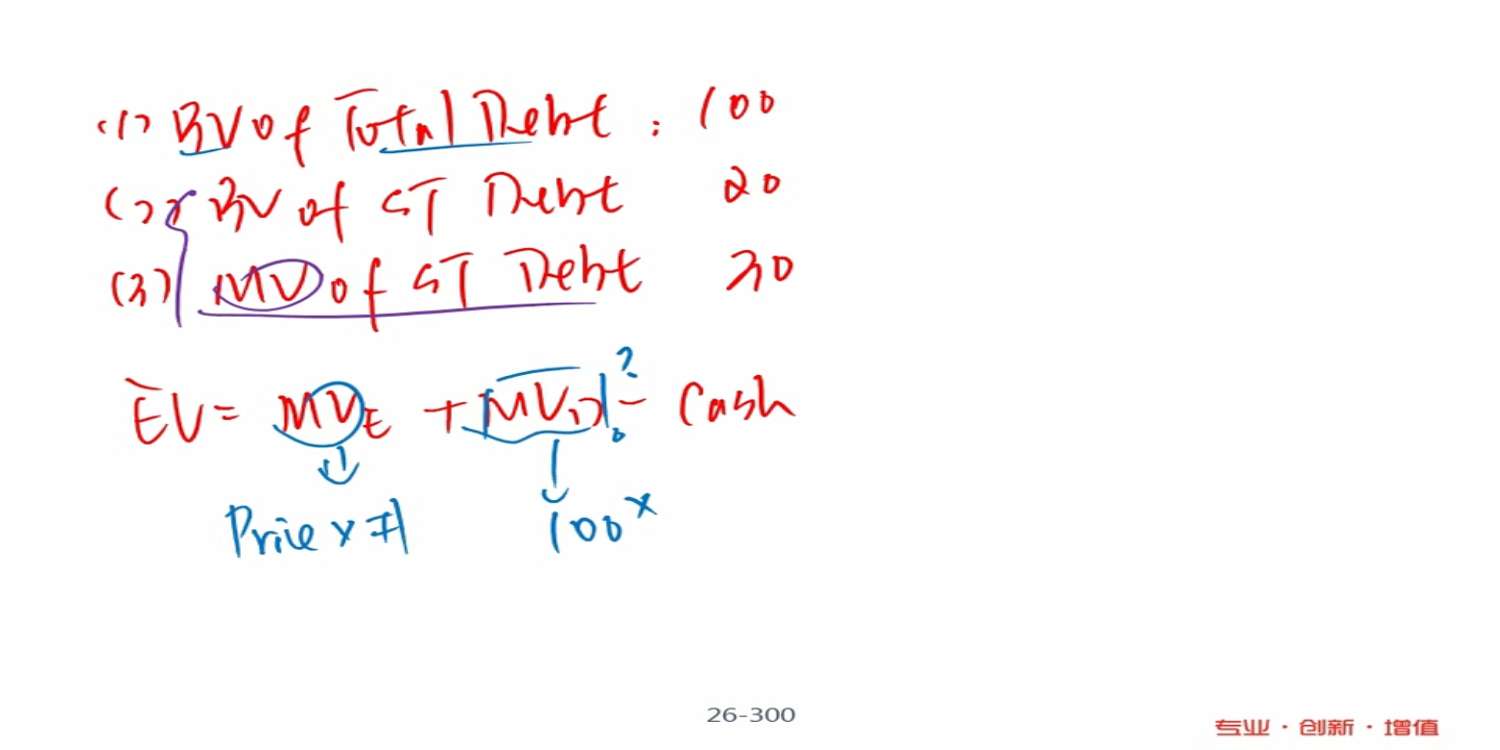 (1) BV of Total Debt : 100
(2) BV of ST Debt 20
(3) MV of ST Debt 30
EV = MVE + MVD ? - Cash
Price x #
100 x
26-300
专业·创新·增值